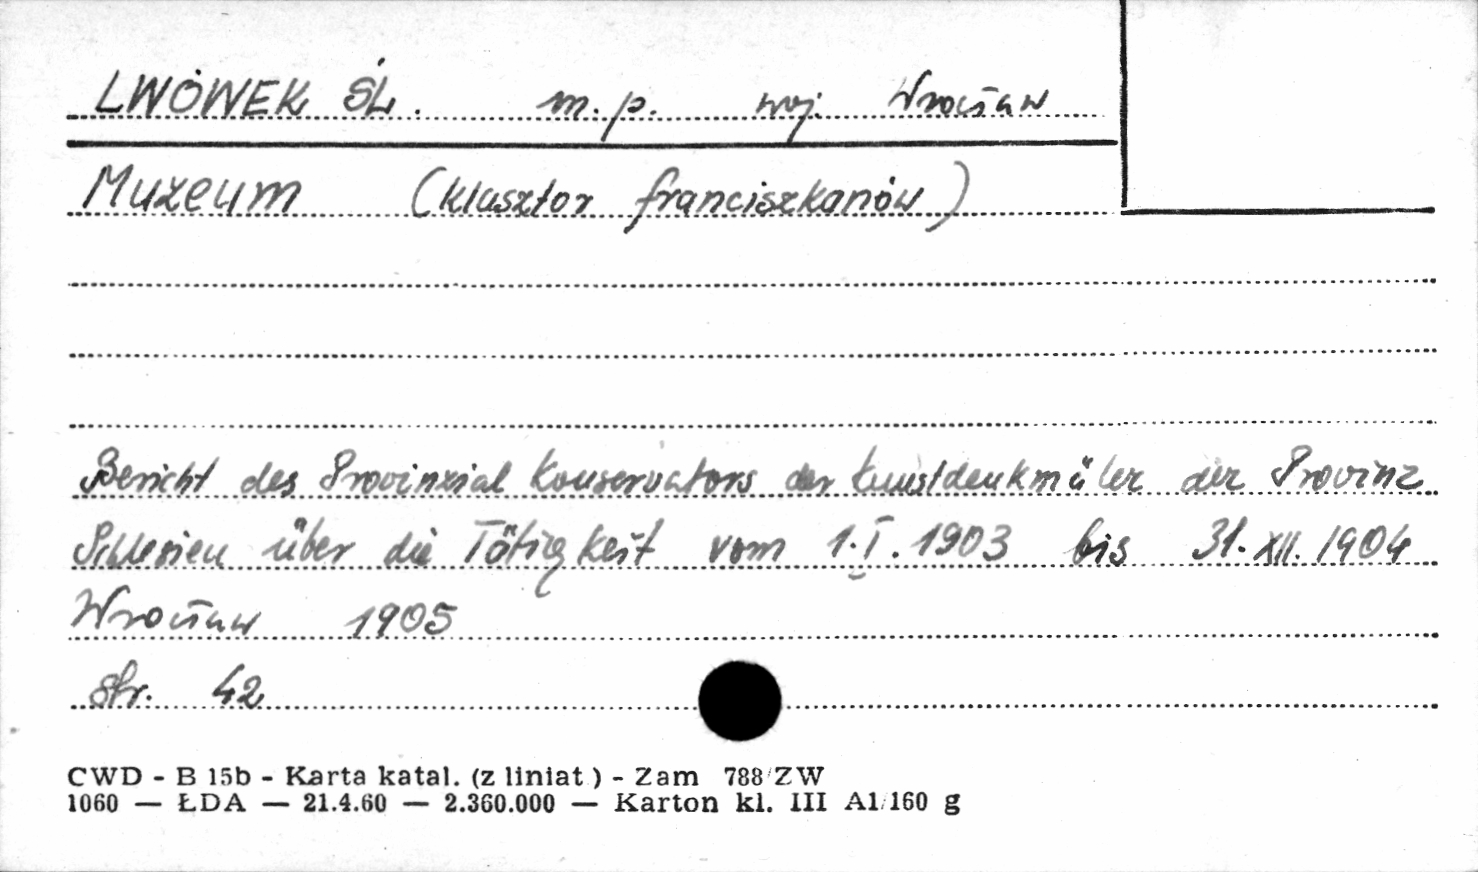 LWÓWEK ŚL. m.p. woj. Wrocław
Muzeum (klasztor franciszkanów)
Bericht des Provinzial Konservators der Kunstdenkmäler der Provinz
Schlesien über die Tätigkeit vom 1.I.1903 bis 31.XII.1904
Wrocław 1905
str. 42
CWD - B 15b - Karta katal. (z liniat) - Zam 788/ZW
1060 — ŁDA — 21.4.60 — 2.360.000 — Karton kl. III A1/160 g